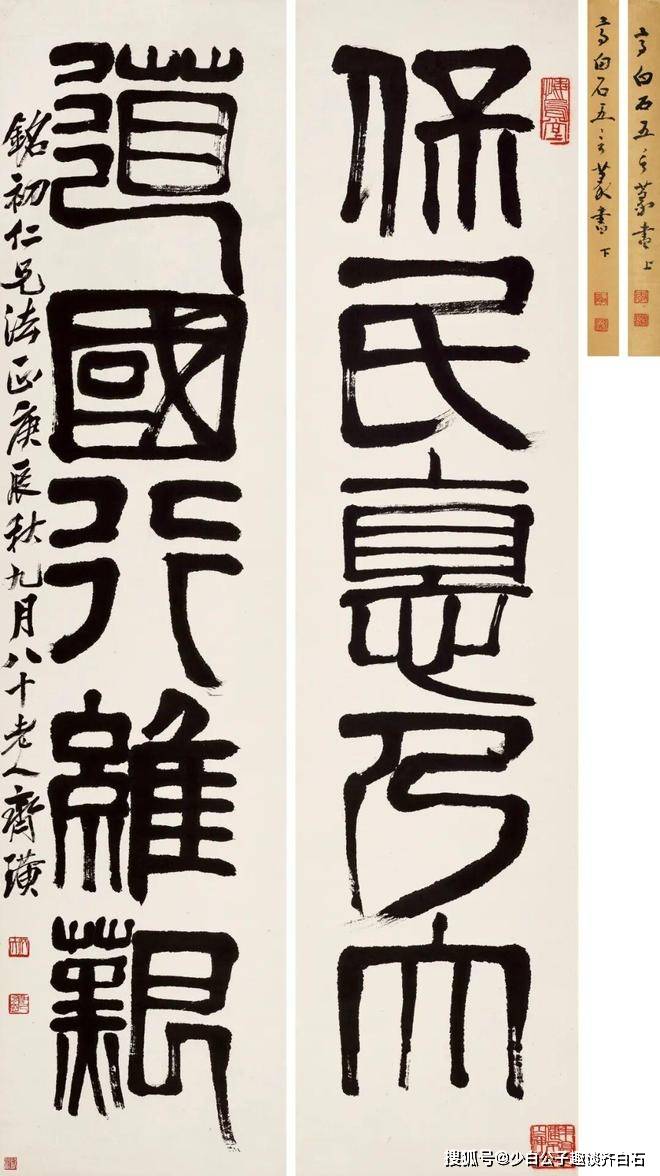 齐白石五言篆書 上
齐白石五言篆書 下
保民悳乃大
道國行維艱
銘初仁兄法正庚辰秋九月八十老人齊璜
搜狐号@少白公子趣谈齐白石